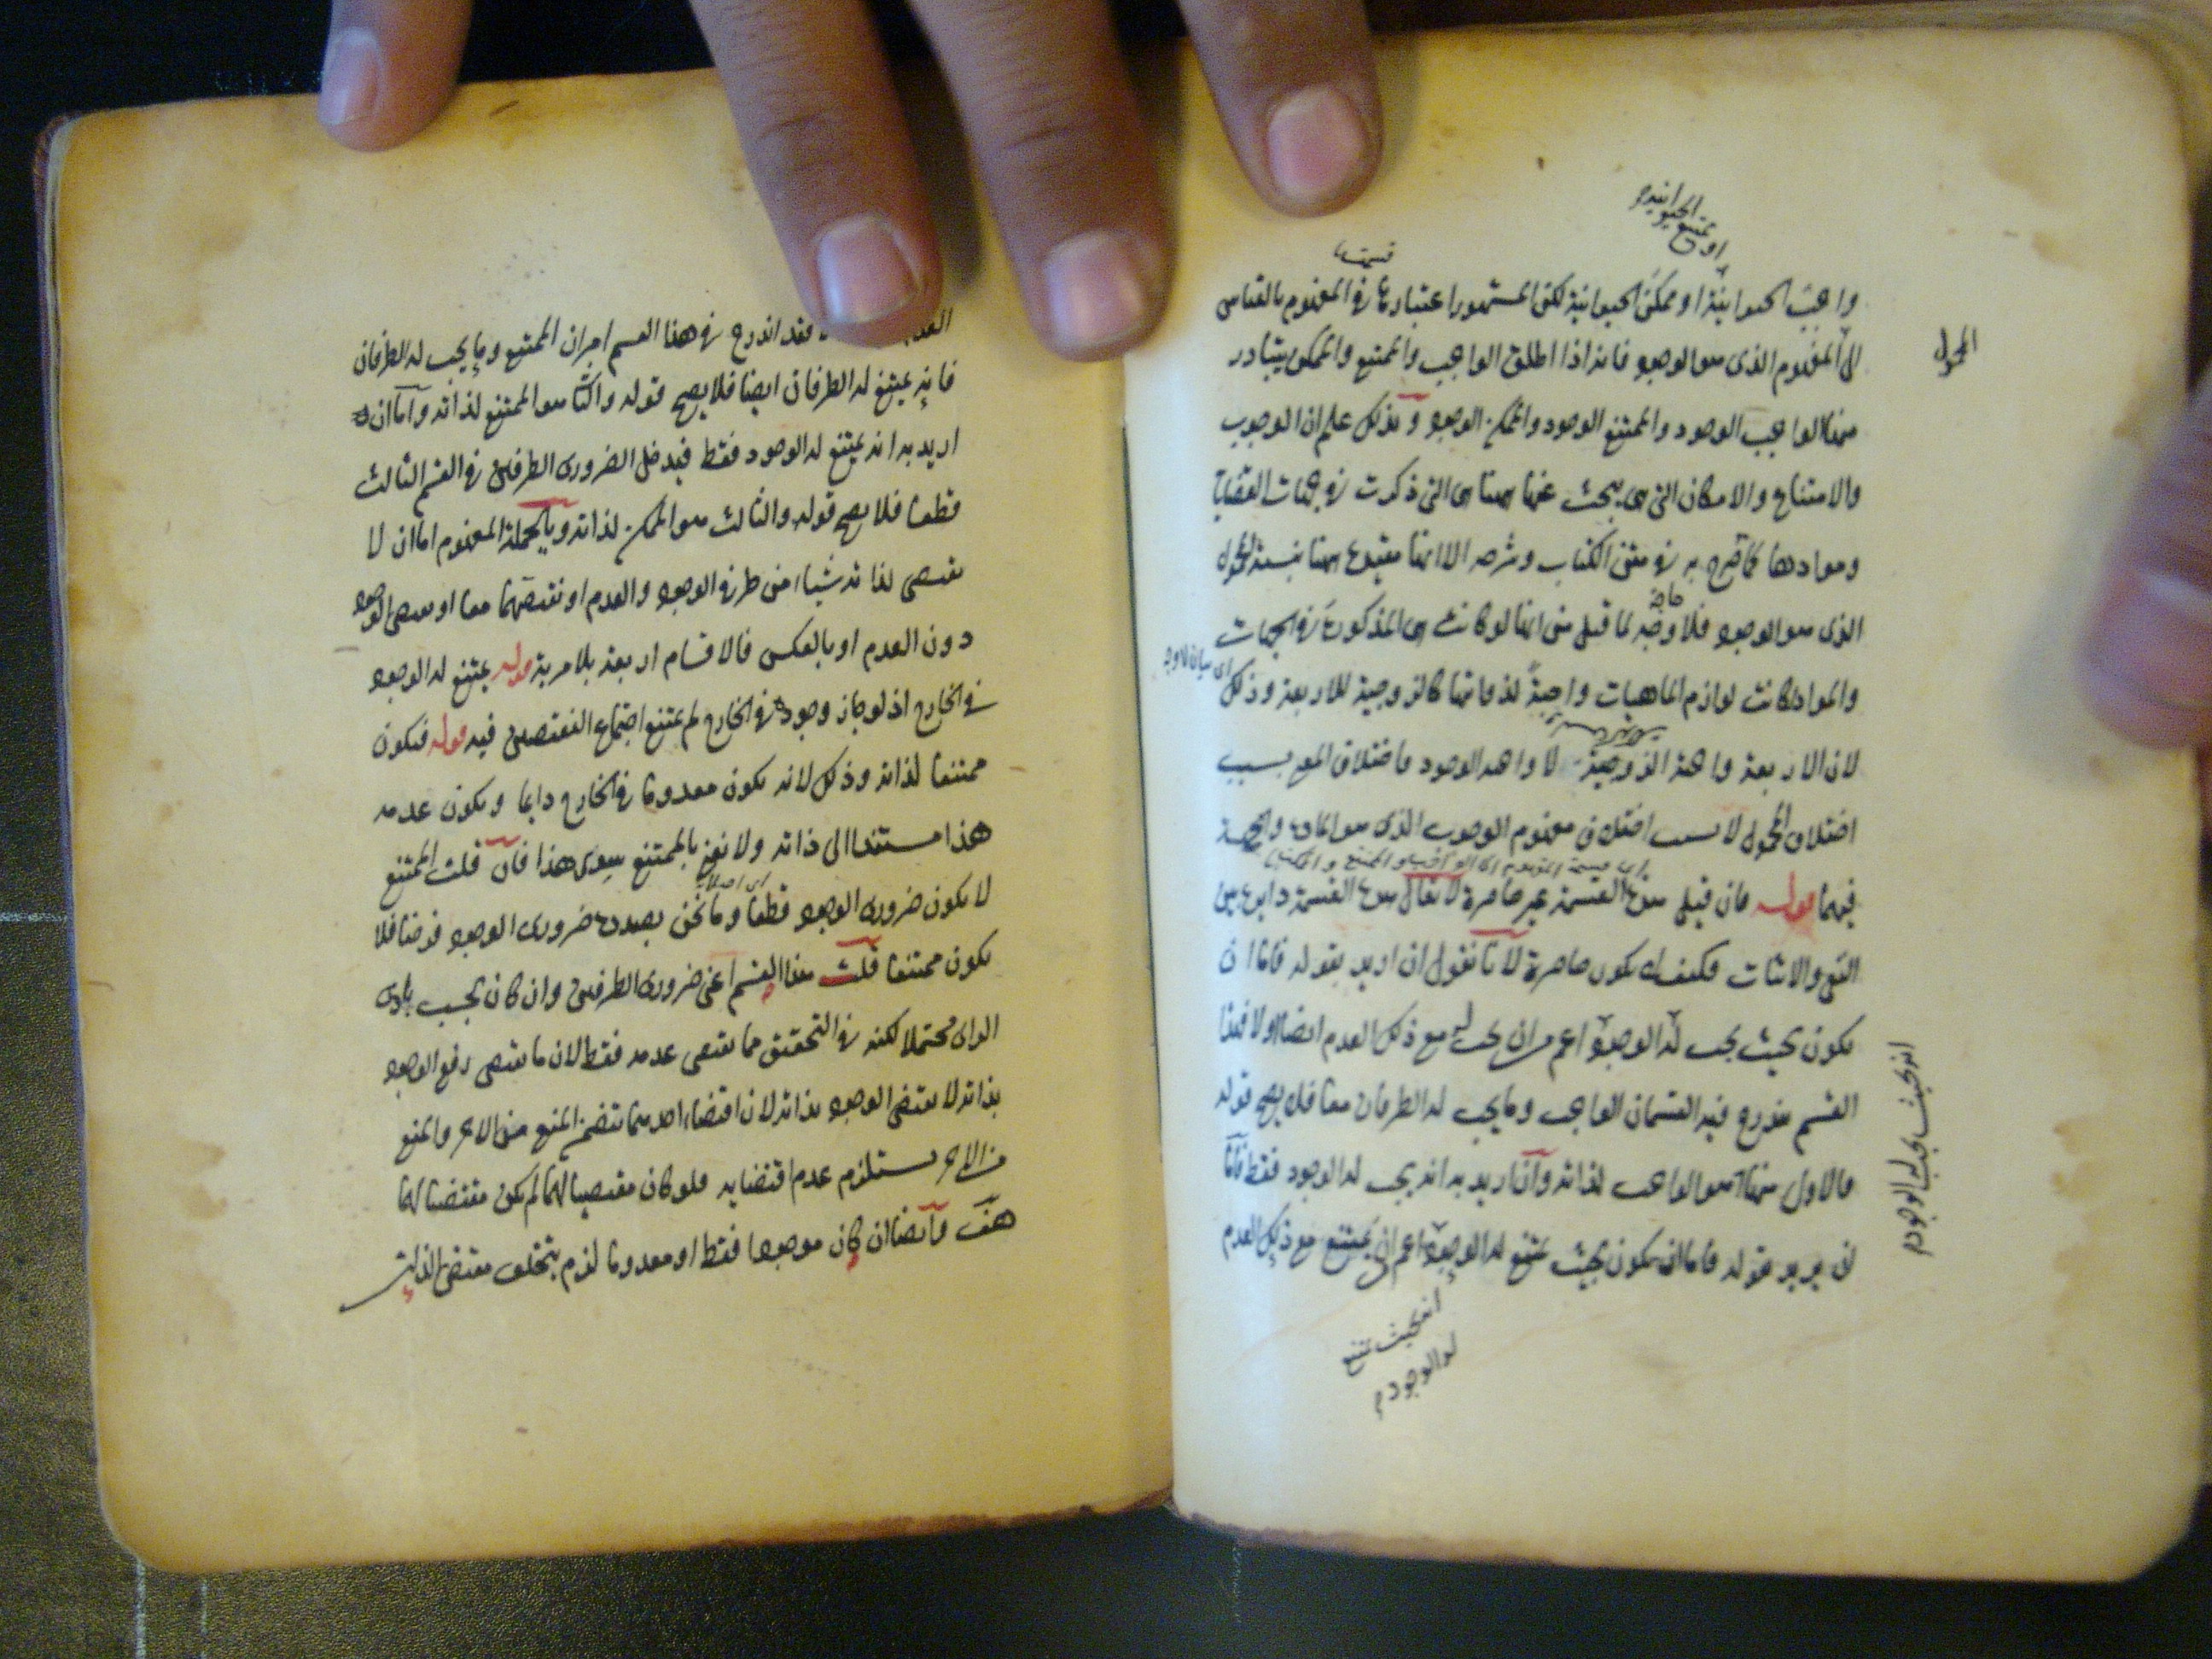 او ممتنع الحيوانية
قسمتها
واجب الحيوانية او ممكن الحيوانية لكن المشهور اعتبارها في المفهوم بالقياس
الى المفهوم الذى هو الوجود فانه اذا اطلق الواجب والممتنع والممكن يتبادر
المحمول
منها الواجب الوجود والممتنع الوجود والممكن الوجود وبذلك علم ان الوجوب
والامتناع والامكان التى يبحث عنها ههنا هى التى ذكرت في جهات القضايا
وموادها كما صرح به في متن الكتاب وشرحه الا انها مقيدة ههنا بنسبة المحمول
الذى هو الوجود فلا وجه لما قيل من انها لو كانت هى المذكورة في الجهات
والمواد لكانت لوازم الماهيات واجبة لذواتها كالزوجية للاربعة وذلك
لان الاربعة واجبة الزوجية لا واجبة الوجود فاختلاف المعنى بسبب
اختلاف المحمول لا بسبب اختلاف مفهوم الوجوب الذى هو المادة والجهة
فيهما قوله فان قيل هذه القسمة غير حاصرة لا يقال هذه القسمة دايرة بين
النفى والاثبات فكيف لا يكون حاصرة لانا نقول ان اريد بقوله فاما ان
يكون بحيث يجب له الوجود اعم من ان يجب له مع ذلك العدم ايضا او لا فهذا
القسم يندرج فيه القسمان الواجب وما يجب له الطرفان معا فلا يصح قوله
فالاول منها هو الواجب لذاته وان اريد به انه يجب له الوجود فقط فاما
ان يريد بقوله فاما ان يكون بحيث يمتنع له الوجود اعم ان يمتنع مع ذلك العدم
انه بحيث يجب له الوجود
انه بحيث يمتنع
له الوجود
فقد اندرج في هذا القسم امران الممتنع وما يجب له الطرفان
فانه يمتنع له الطرفان ايضا فلا يصح قوله والثانى هو الممتنع لذاته واما ان
اريد به انه يمتنع له الوجود فقط فيدخل الضرورى الطرفين في القسم الثالث
قطعا فلا يصح قوله والثالث هو الممكن لذاته وبالجملة المفهوم اما ان لا
يقتضى لذاته شيئا من طرفى الوجود والعدم او يقتضيهما معا او يقتضى الوجود
دون العدم او بالعكس فالاقسام اربعة بلا مرية قوله يمتنع له الوجود
في الخارج اذ لو جاز وجوده في الخارج لم يمتنع اجتماع النقيضين فيه قوله فيكون
ممتنعا لذاته وذلك لانه يكون معدوما في الخارج دايما ويكون عدمه
هذا مستندا الى ذاته ولا نعنى بالممتنع سوى هذا فان قلت الممتنع
لا يكون ضرورى الوجود قطعا وما نحن بصدده ضرورى الوجود فرضا فلا
يكون ممتنعا قلت هذا القسم اعنى ضرورى الطرفين وان كان بحسب بادى
الراى محتملا لكنه في التحقيق مما يقتضى عدمه فقط لان ما يقتضى رفع الوجود
بذاته لا يقتضى الوجود بذاته لان اقتضاء احدهما يتضمن المنع من الاخر والمنع
من الاخر يستلزم عدم اقتضايه فلو كان مقتضيا لهما لم يكن مقتضيا لهما
هف وايضا ان كان موجودا فقط او معدوما لزم تخلف مقتضى الذات